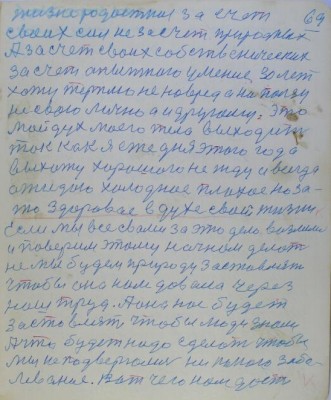 жизнерадостным за счет 69
своих сил не за счет природных
А за счет своих собственических
за счет опытного умение 30 лет
хожу терплю не новреда на пользу
не свою лично а и другому. Это
мой дух моего тела выходить
так как я еже дня этого года
выхожу хорошого не жду и всегда
ожидаю холодное плохое но за-
то здоровае в духе своей жизни
Если мы все свами за это дело возмем
и поверим этому начнем делать
не мы будем природу заставлять
чтобы она нам давала через
наш труд. А она нас будет
заставлять чтобы люди знали
А что будет надо сделать чтобы
мы не подвергалися ни какого забо-
левание. Вот чего нам даст